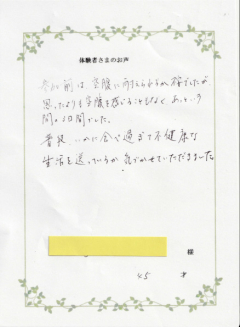 体験者さまのお声
参加前は、空腹に耐えられるか心配でしたが
思ったよりも空腹を感じることもなく、あっという
間の3日間でした。
普段、いかに食べ過ぎで不健康な
生活を送っているか気づかせていただきました。
様
45 才